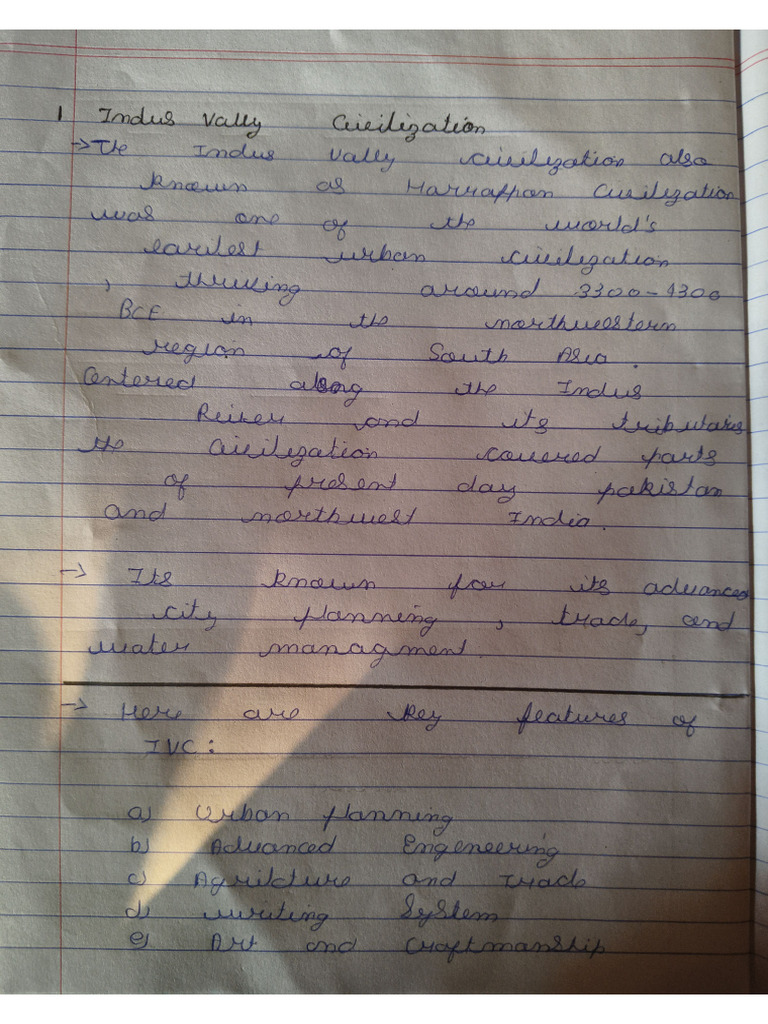 1 Indus Vally Civilization
→ The Indus Vally civilization also
known as Harrappan Civilization
was one of the world's
earilest urban civilization
, thriving around 3300-1300
BCE in the northwestern
region of South Asia.
Centered along the Indus
River and its tributaries
the Civilization covered parts
of present day pakistan
and northwest India.
→ Its known for its advances
city planning, trade, and
water managment.
→ Here are key features of
IVC:
a) Urban planning
b) Advanced Engeneering
c) Agrilcture and Trade
d) writing System
e) Art and Craftmanship